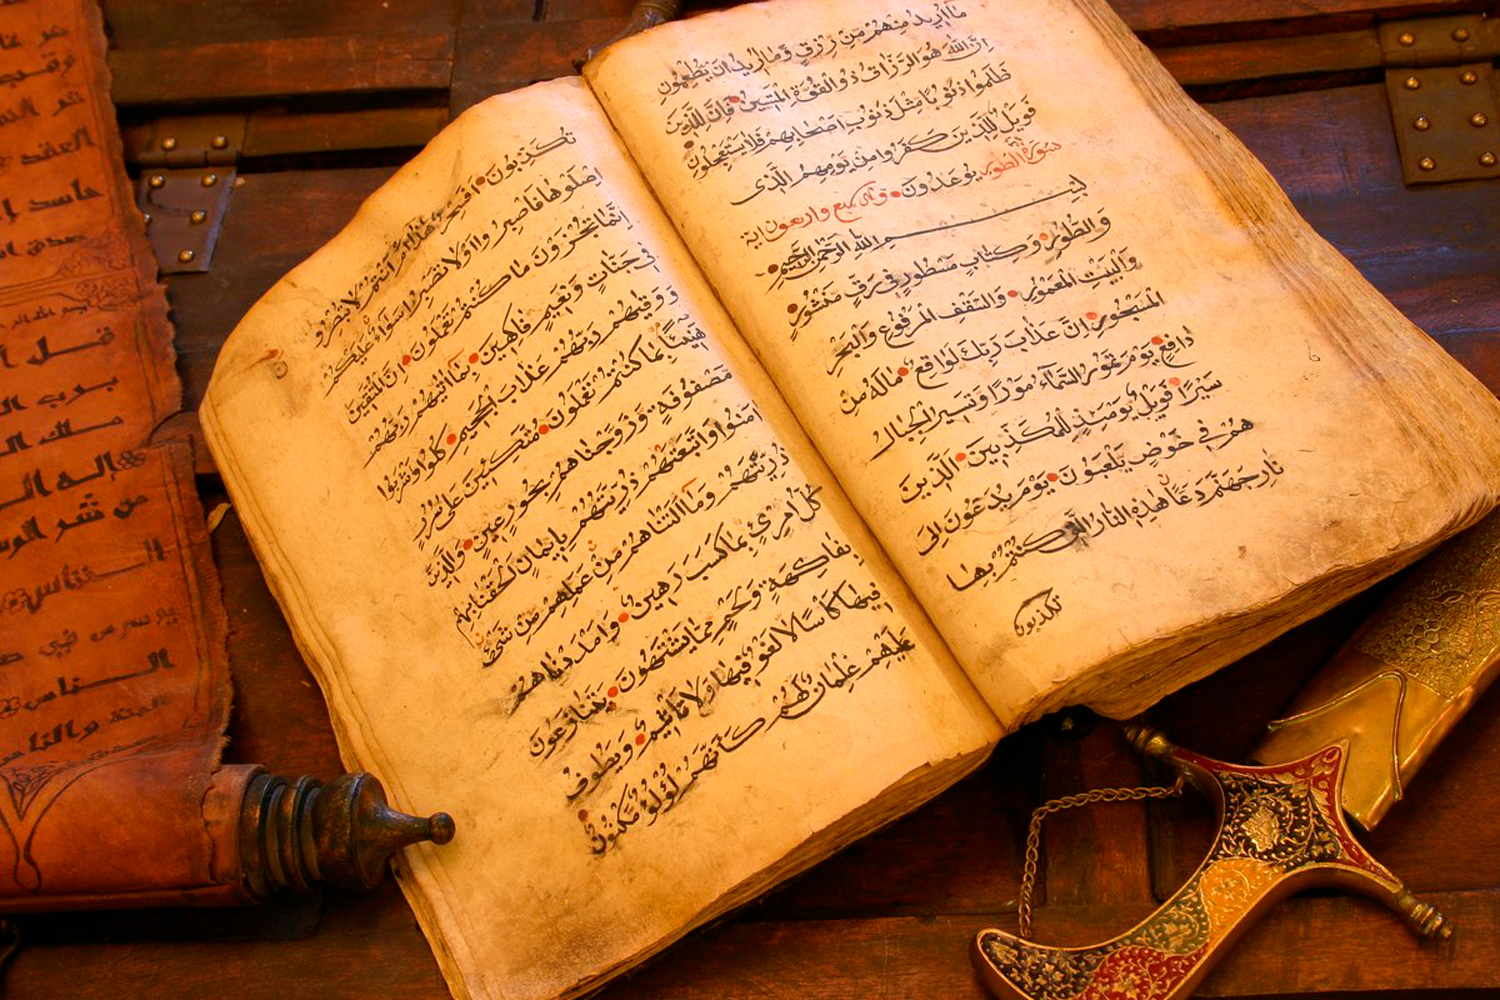 ما اريد منهم من رزق وما اريد ان يطعمون
ان الله هو الرزاق ذو القوة المتين فان للذين
ظلموا ذنوبا مثل ذنوب اصحابهم فلا يستعجلون
فويل للذين كفروا من يومهم الذى
يوعدون سورة الطور
وهى سبع واربعون اية
بسم الله الرحمن الرحيم
والطور وكتاب مسطور فى رق منشور
والبيت المعمور والسقف المرفوع والبحر
المسجور ان عذاب ربك لواقع ماله من
دافع يوم تمور السماء مورا وتسير الجبال
سيرا فويل يومئذ للمكذبين الذين
هم فى خوض يلعبون يوم يدعون الى
نار جهنم دعا هذه النار التى كنتم بها
تكذبون
تكذبون افسحر هذا ام انتم لا تبصرون
اصلوها فاصبروا او لا تصبروا سواء عليكم
انما تجزون ما كنتم تعملون ان المتقين
فى جنات ونعيم فاكهين بما اتيهم ربهم
ووقيهم ربهم عذاب الجحيم كلوا واشربوا
هنيئا بما كنتم تعملون متكئين على سرر
مصفوفة وزوجناهم بحور عين والذين
امنوا واتبعتهم ذريتهم بايمان الحقنا بهم
ذريتهم وما التناهم من عملهم من شئ
كل امرئ بما كسب رهين وامددناهم
بفاكهة ولحم مما يشتهون يتنازعون
فيها كاسا لا لغو فيها ولا تأثيم ويطوف
عليهم غلمان لهم كانهم لؤلؤ مكنون
العقد
حاسد إ
قل أ
برب ال
ملك ال
إله ال
من شر الوس
الناس
يوسوس في ص
الناس
الجنة والناس